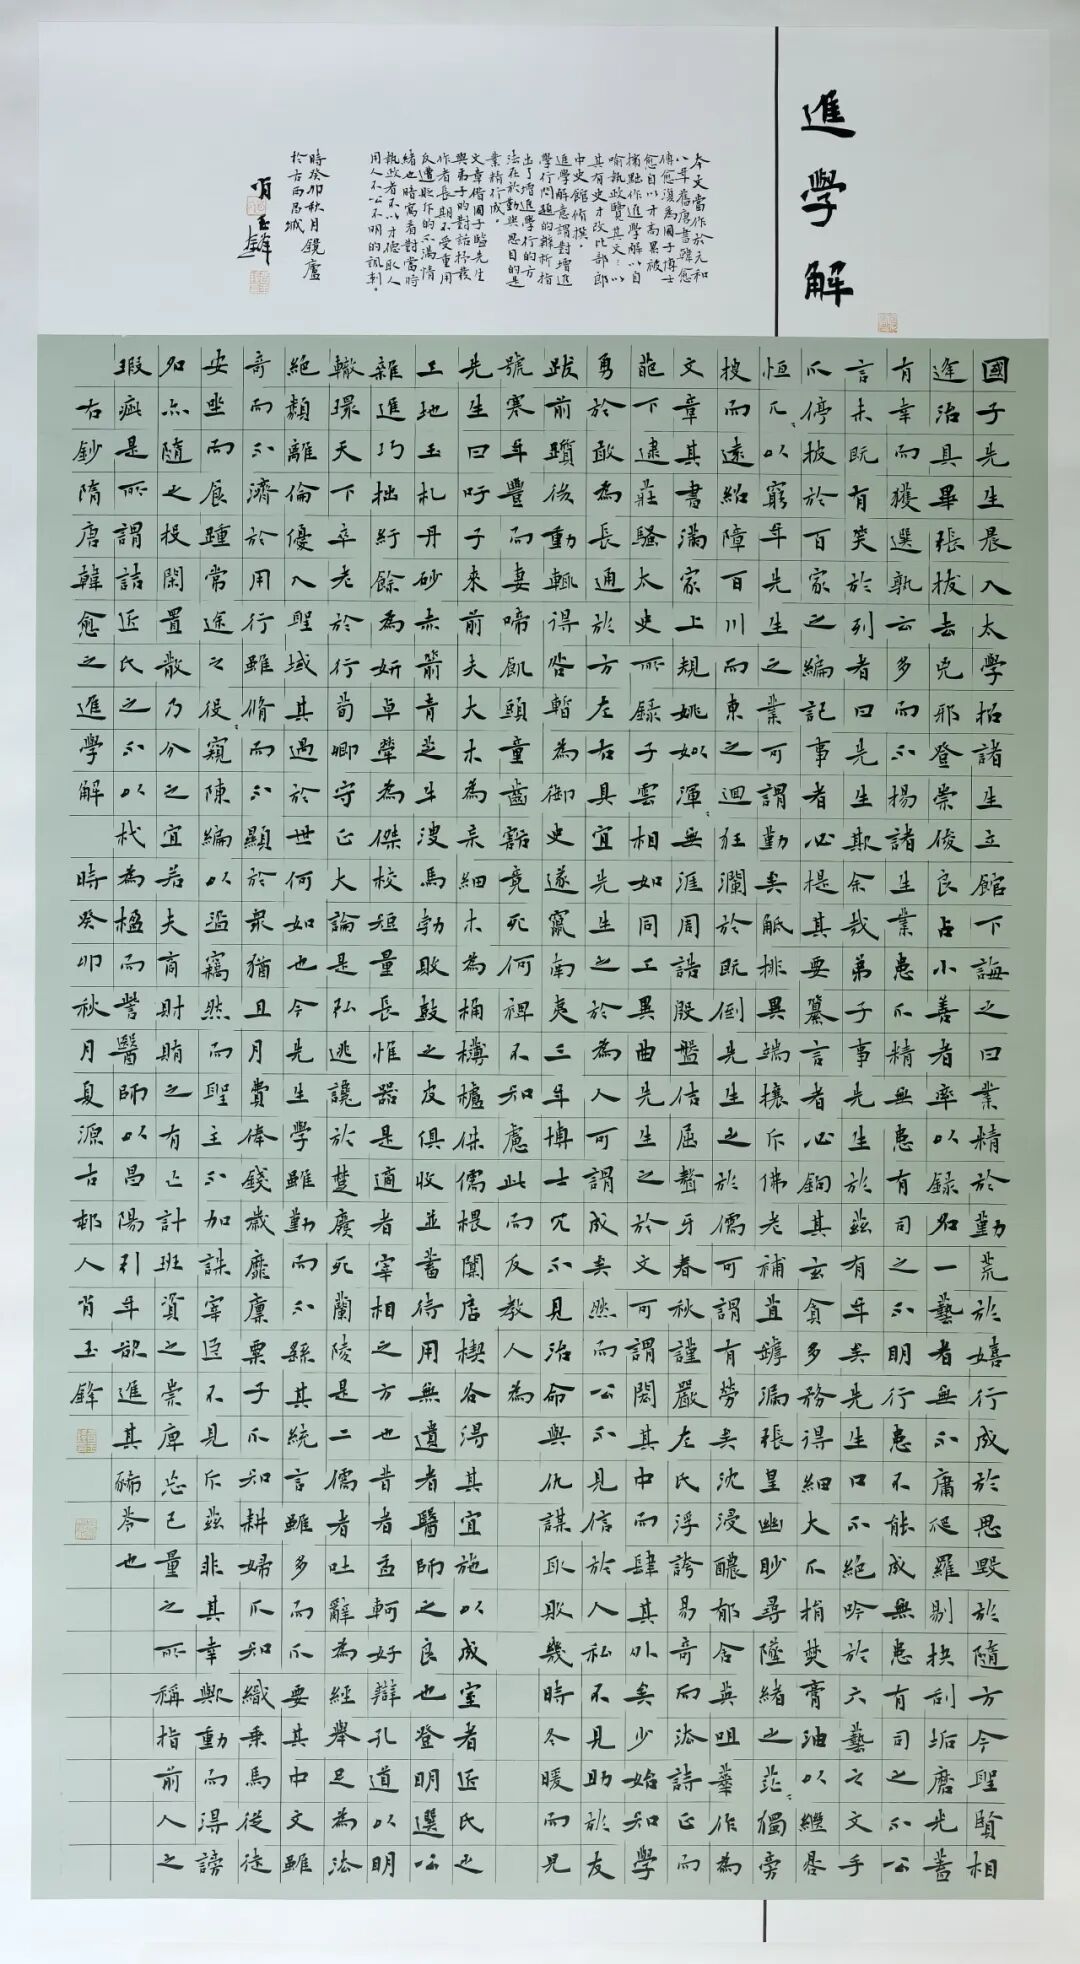 進學解
本文當作於元和
八年舊唐書韓愈
傳愈復為國子博士
愈自以才高累被
擯黜作進學解以自
喻執政覽其文：以
其有史才改比部郎
中史館脩撰。
進學解意謂對增進
學行問題的辯析指
出了增進學行的方
法在於勤與思目的是
業精行成。
文章借國子臨先生
與弟子的對話抒發
作者長期不受重用
反遭貶斥的不滿情
緒也時寓着對當時
執政者不以才德取人
用人不公不明的諷刺。
時癸卯秋月鏡廬
於古西邑城
肖玉鋒
國子先生晨入太學招諸生立館下誨之曰業精於勤荒於嬉行成於思毀於隨方今聖賢相
逢治具畢張拔去兇邪登崇俊良占小善者率以錄名一藝者無不庸爬羅剔抉刮垢磨光蓋
有幸而獲選孰云多而不揚諸生業患不精無患有司之不明行患不能成無患有司之不公
言未既有笑於列者曰先生欺余哉弟子事先生於茲有年矣先生口不絕吟於六藝之文手
不停披於百家之編記事者必提其要纂言者必鉤其玄貪多務得細大不捐焚膏油以繼晷
恒兀以窮年先生之業可謂勤矣觝排異端攘斥佛老補苴罅漏張皇幽眇尋墜緒之茫獨旁
搜而遠紹障百川而東之迴狂瀾於既倒先生之於儒可謂有勞矣沈浸醲郁含英咀華作為
文章其書滿家上規姚姒渾無涯周誥殷盤佶屈聱牙春秋謹嚴左氏浮誇易奇而法詩正而
葩下逮莊騷太史所錄子雲相如同工異曲先生之於文可謂閎其中而肆其外矣少始知學
勇於敢為長通於方左右具宜先生之於為人可謂成矣然而公不見信於人私不見助於友
跋前躓後動輒得咎暫為御史遂竄南夷三年博士冗不見治命與仇謀取敗幾時冬暖而兒
號寒年豐而妻啼飢頭童齒豁竟死何裨不知慮此而反教人為
先生曰吁子來前夫大木為杗細木為桷欂櫨侏儒椳闑扂楔各得其宜施以成室者匠氏之
工地玉札丹砂赤箭青芝牛溲馬勃敗鼓之皮俱收並蓄待用無遺者醫師之良也登明選公
雜進巧拙紆餘為妍卓犖為傑校短量長惟器是適者宰相之方也昔者孟軻好辯孔道以明
轍環天下卒老於行荀卿守正大論是弘逃讒於楚廢死蘭陵是二儒者吐辭為經舉足為法
絕類離倫優入聖域其遇於世何如也今先生學雖勤而不繇其統言雖多而不要其中文雖
奇而不濟於用行雖脩而不顯於衆猶且月費俸錢歲靡廩粟子不知耕婦不知織乘馬從徒
安坐而食踵常途之役窺陳編以盜竊然而聖主不加誅宰臣不見斥茲非其幸歟動而得謗
名亦隨之投閑置散乃分之宜若夫商財賄之有亡計班資之崇庳忘己量之所稱指前人之
瑕疵是所謂詰匠氏之不以杙為楹而訾醫師以昌陽引年欲進其豨苓也
右鈔隋唐韓愈之進學解時癸卯秋月夏源古邨人肖玉鋒